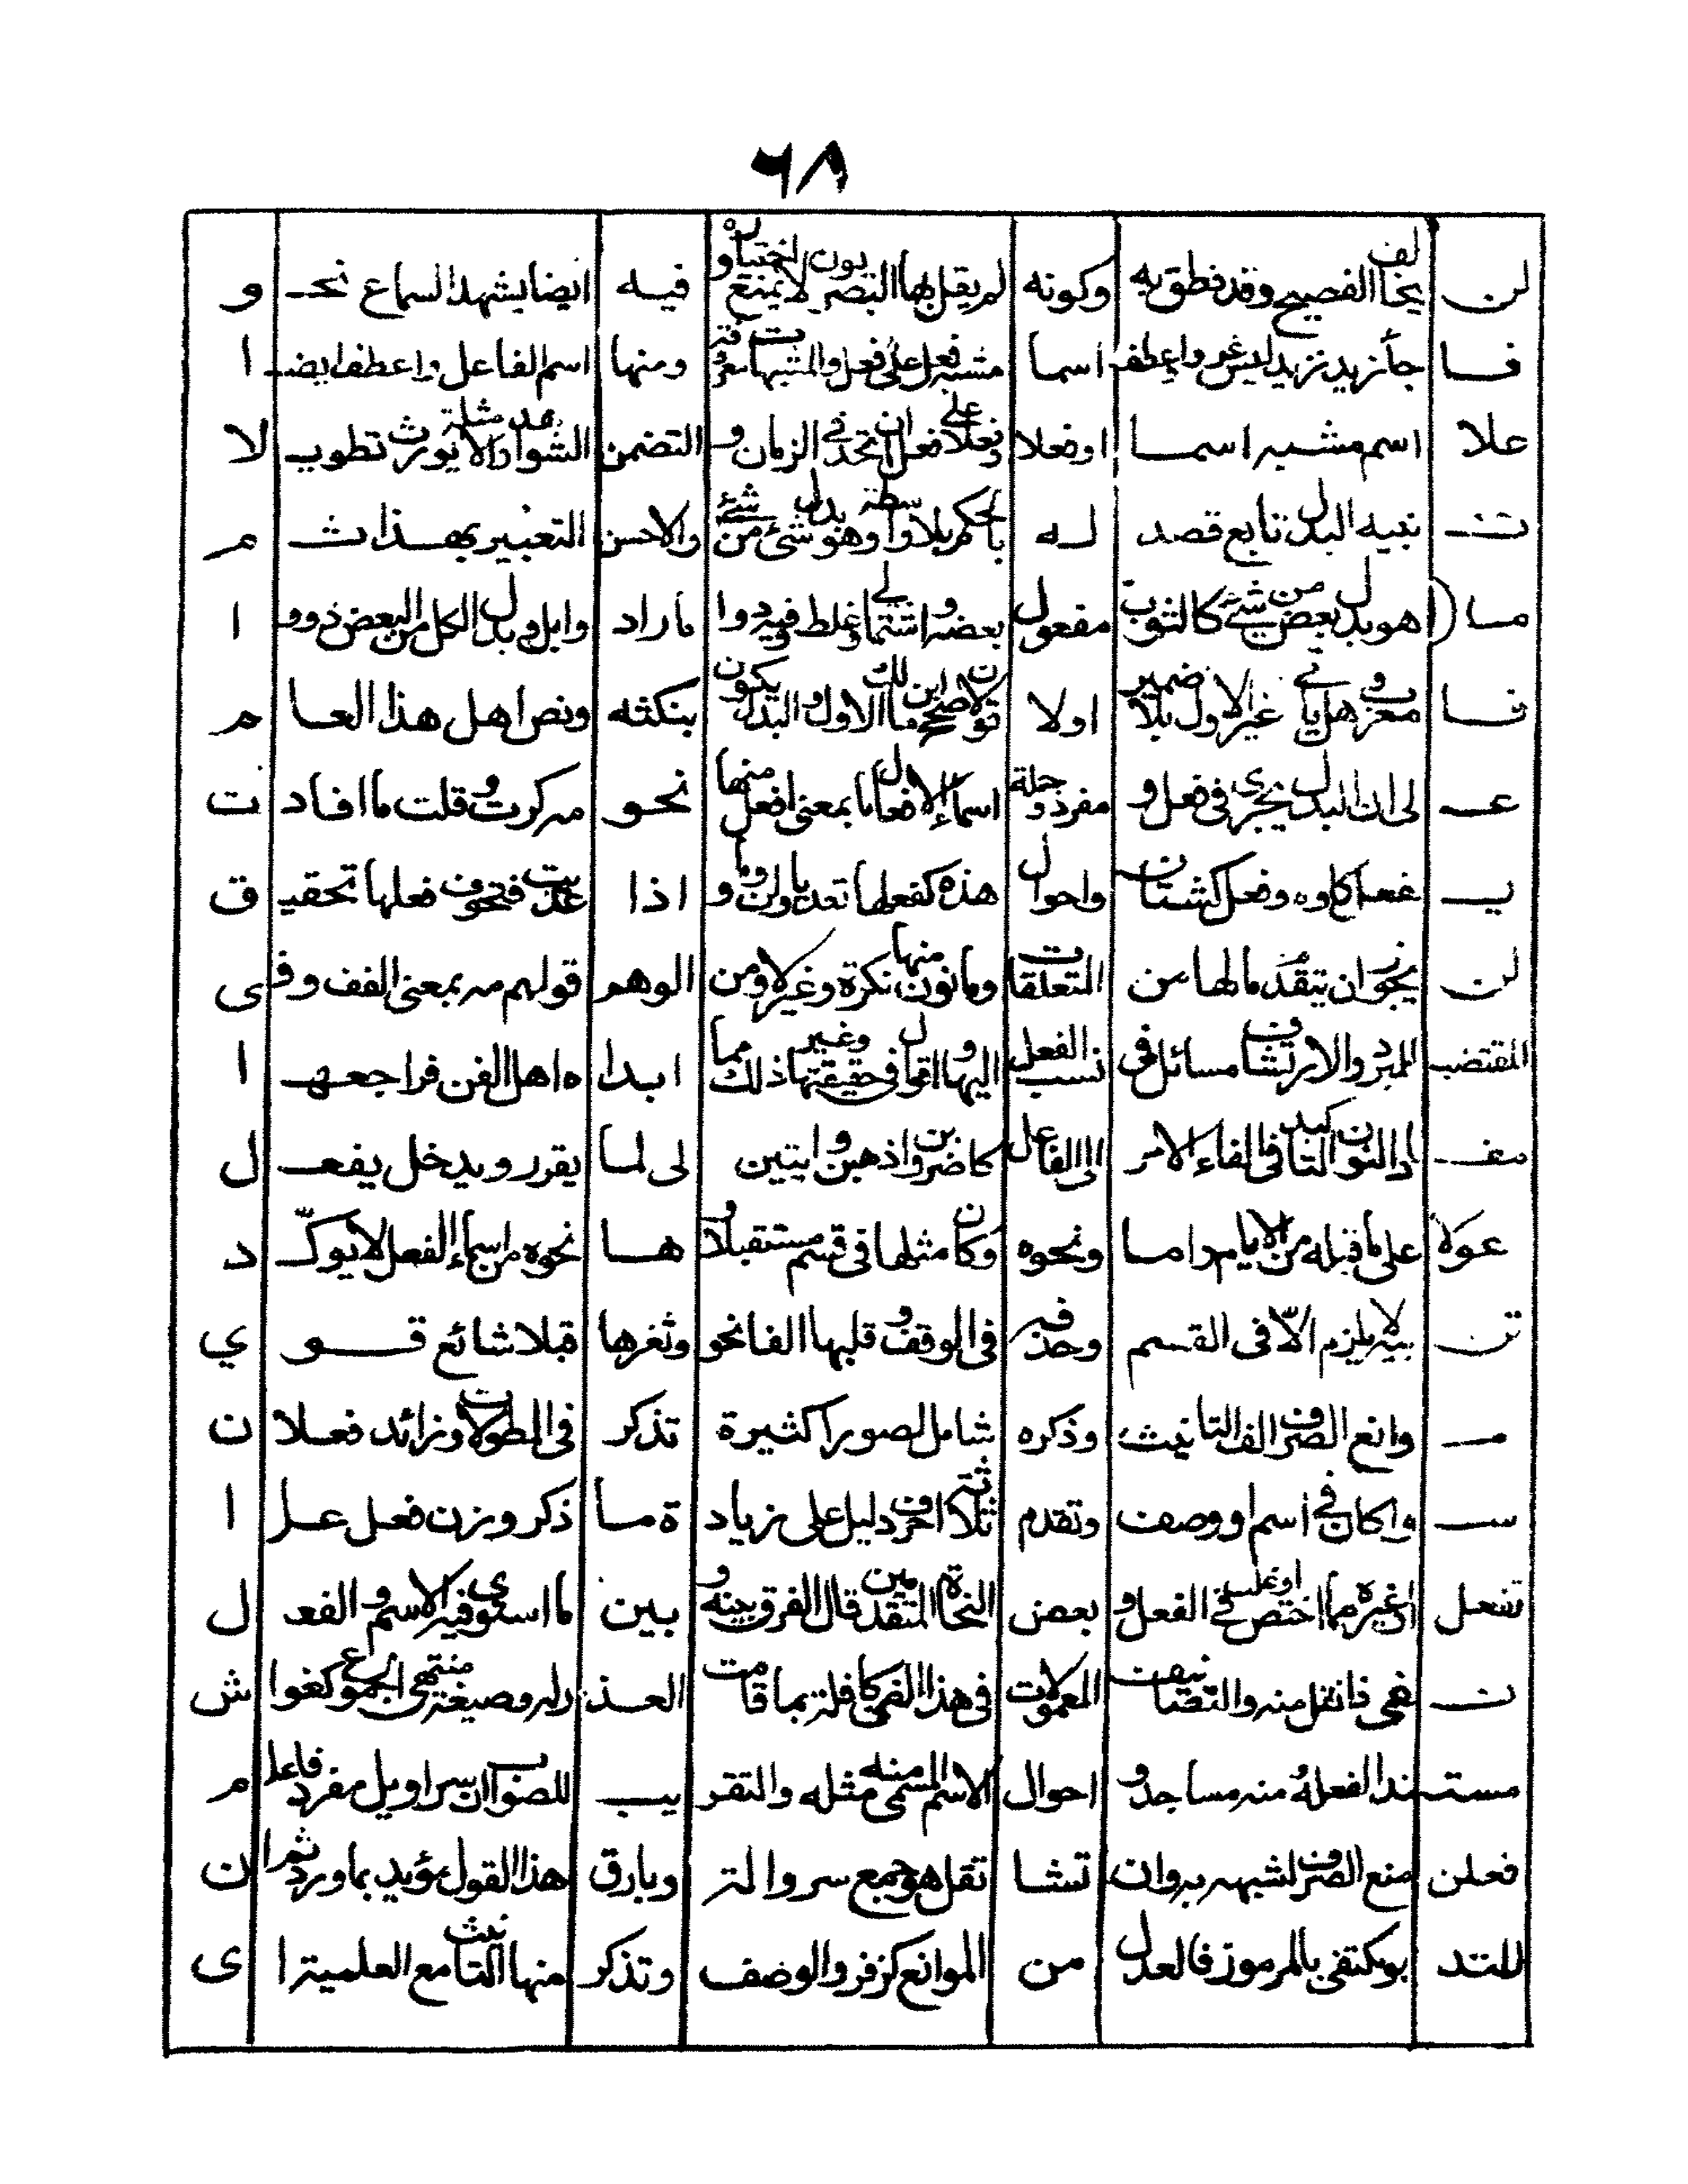 ٦٨
لن يخالف الفصيح وقد نطق به وكونه لم يقل بها البصريون لا يمنع اختياره و فيه ايضا يشهد السماع نحـ و
فـا جأ زيد نزيد ليس غير واعطف اسما مشبه فعل على فعل والمشبهات معرفة ومنها اسم الفاعل واعطف ايضـ ا
علا اسم مشبه اسمـا او فعلا وفعلا على فعل ان اتحد في الزمان و التضمن الشواهد امثلة لا يورث تطويـ لا
تـ نبيه البدل تابع قصد لـه بالحكم بلا واسطة وهو بدل شئ من شئ والاحسن التعبير بهـذا ثـ م
مـا هو بدل بعض من شئ كالثوب مفعول بعضه واشتمالي وغلط وفيه دوا ماراد وابل وبدل الكل من البعض ذوو ا
نـا معرب وهل يأتي غير الاول بلا ضمير اولا قولان صحح ابن مالك الاول والبدل يكون بنكتة ونص اهل هذا العـا م
عـ لى ان البدل يجرى فى فعل و جملة مفرد و اسماء الافعال ما بمعنى افعل منها نحـو مه كرت وقلت ما افاد ت
يـ فعل كاوه وفعل كشتان واحوال هذه كفعلها تعديا ولزوما و اذا عديت فنحوف فعلها تحقيـ ق
لن يجوز ان يتقدم مالها من التعلقات وما نون منها نكرة وغيره لا ومن الوهم قولهم مه بمعنى اكفف وفـ ى
المقتضب للمبرد والارتشاف مسائل فى نسب الفعل اليها واقوال فى حقيقتها وغير ذلك مما ابدا ه اهل الفن فراجعهـ ا
مفـ اد النون التاكيد فى الفاء الامر الى الفاعل كاضربن واذهبن وايتين لى لمـا يقرر ويدخل يفعـ ل
عولا على ما قبله من الايام داما ونحوه وكان مثلها فى قسم مستقبلا و هـا نحوه من اسماء الفعل لا يوكـ د
تن بيه لا يلزم الا فى القسم وحذفه فى الوقف وقلبها الفا نحو وثغرها قبلا شائع قـو ي
مـ وانع الصرف الف التانيث وذكره شامل لصورا كثيرة تذكر فى المطولات وزائد فعـلا ن
سـ واكان فى اسم او وصف وتقدم ثلاثة احرف دليل على زياد ة مـا ذكر وزن فعل عـلـ ا
تفعل او غيره مما اختص او غلب فى الفعل و بعض النحاة المتقدمين قال الفرق بينه و بين ما استوى فيه الاسم والفعـ ل
ن فى ذا نقل منه والتصانيف المعمولات فى هذا الفن كافلة بما قامت العـذ رله وصيغة منتهى الجموع كغوا ش
مستـ ندا لفعله منه مساجد و احوال الاسم المسمى منه مثله والتقر يـب للصواب ان سراويل مفرد فاعلـ م
فعلن منع الصرف لشبهه به وان تشا تقل هو جمع سروالة ويارق هذا القول مؤيد بما ورد ثمرا ن
للتـد بويكتفى بالمرموز فالعدل من الموانع كزفر والوصف وتذكر منها التانيث مع العلمية ا ى